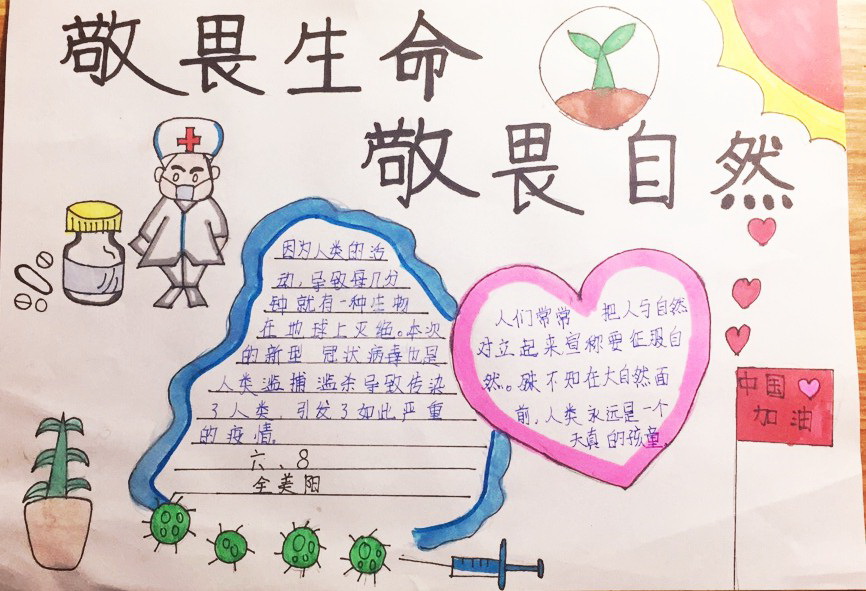 敬畏生命
敬畏自然
因为人类的活
动，导致每几分
钟就有一种生物
在地球上灭绝。本次
的新型 冠状病毒也是
人类滥捕滥杀导致传染
了人类，引发了如此严重
的疫情。
六、8
全美阳
人们常常 把人与自然
对立起来宣称要征服自
然。殊不知在大自然面
前，人类永远是一个
天真的孩童。
中国
加油